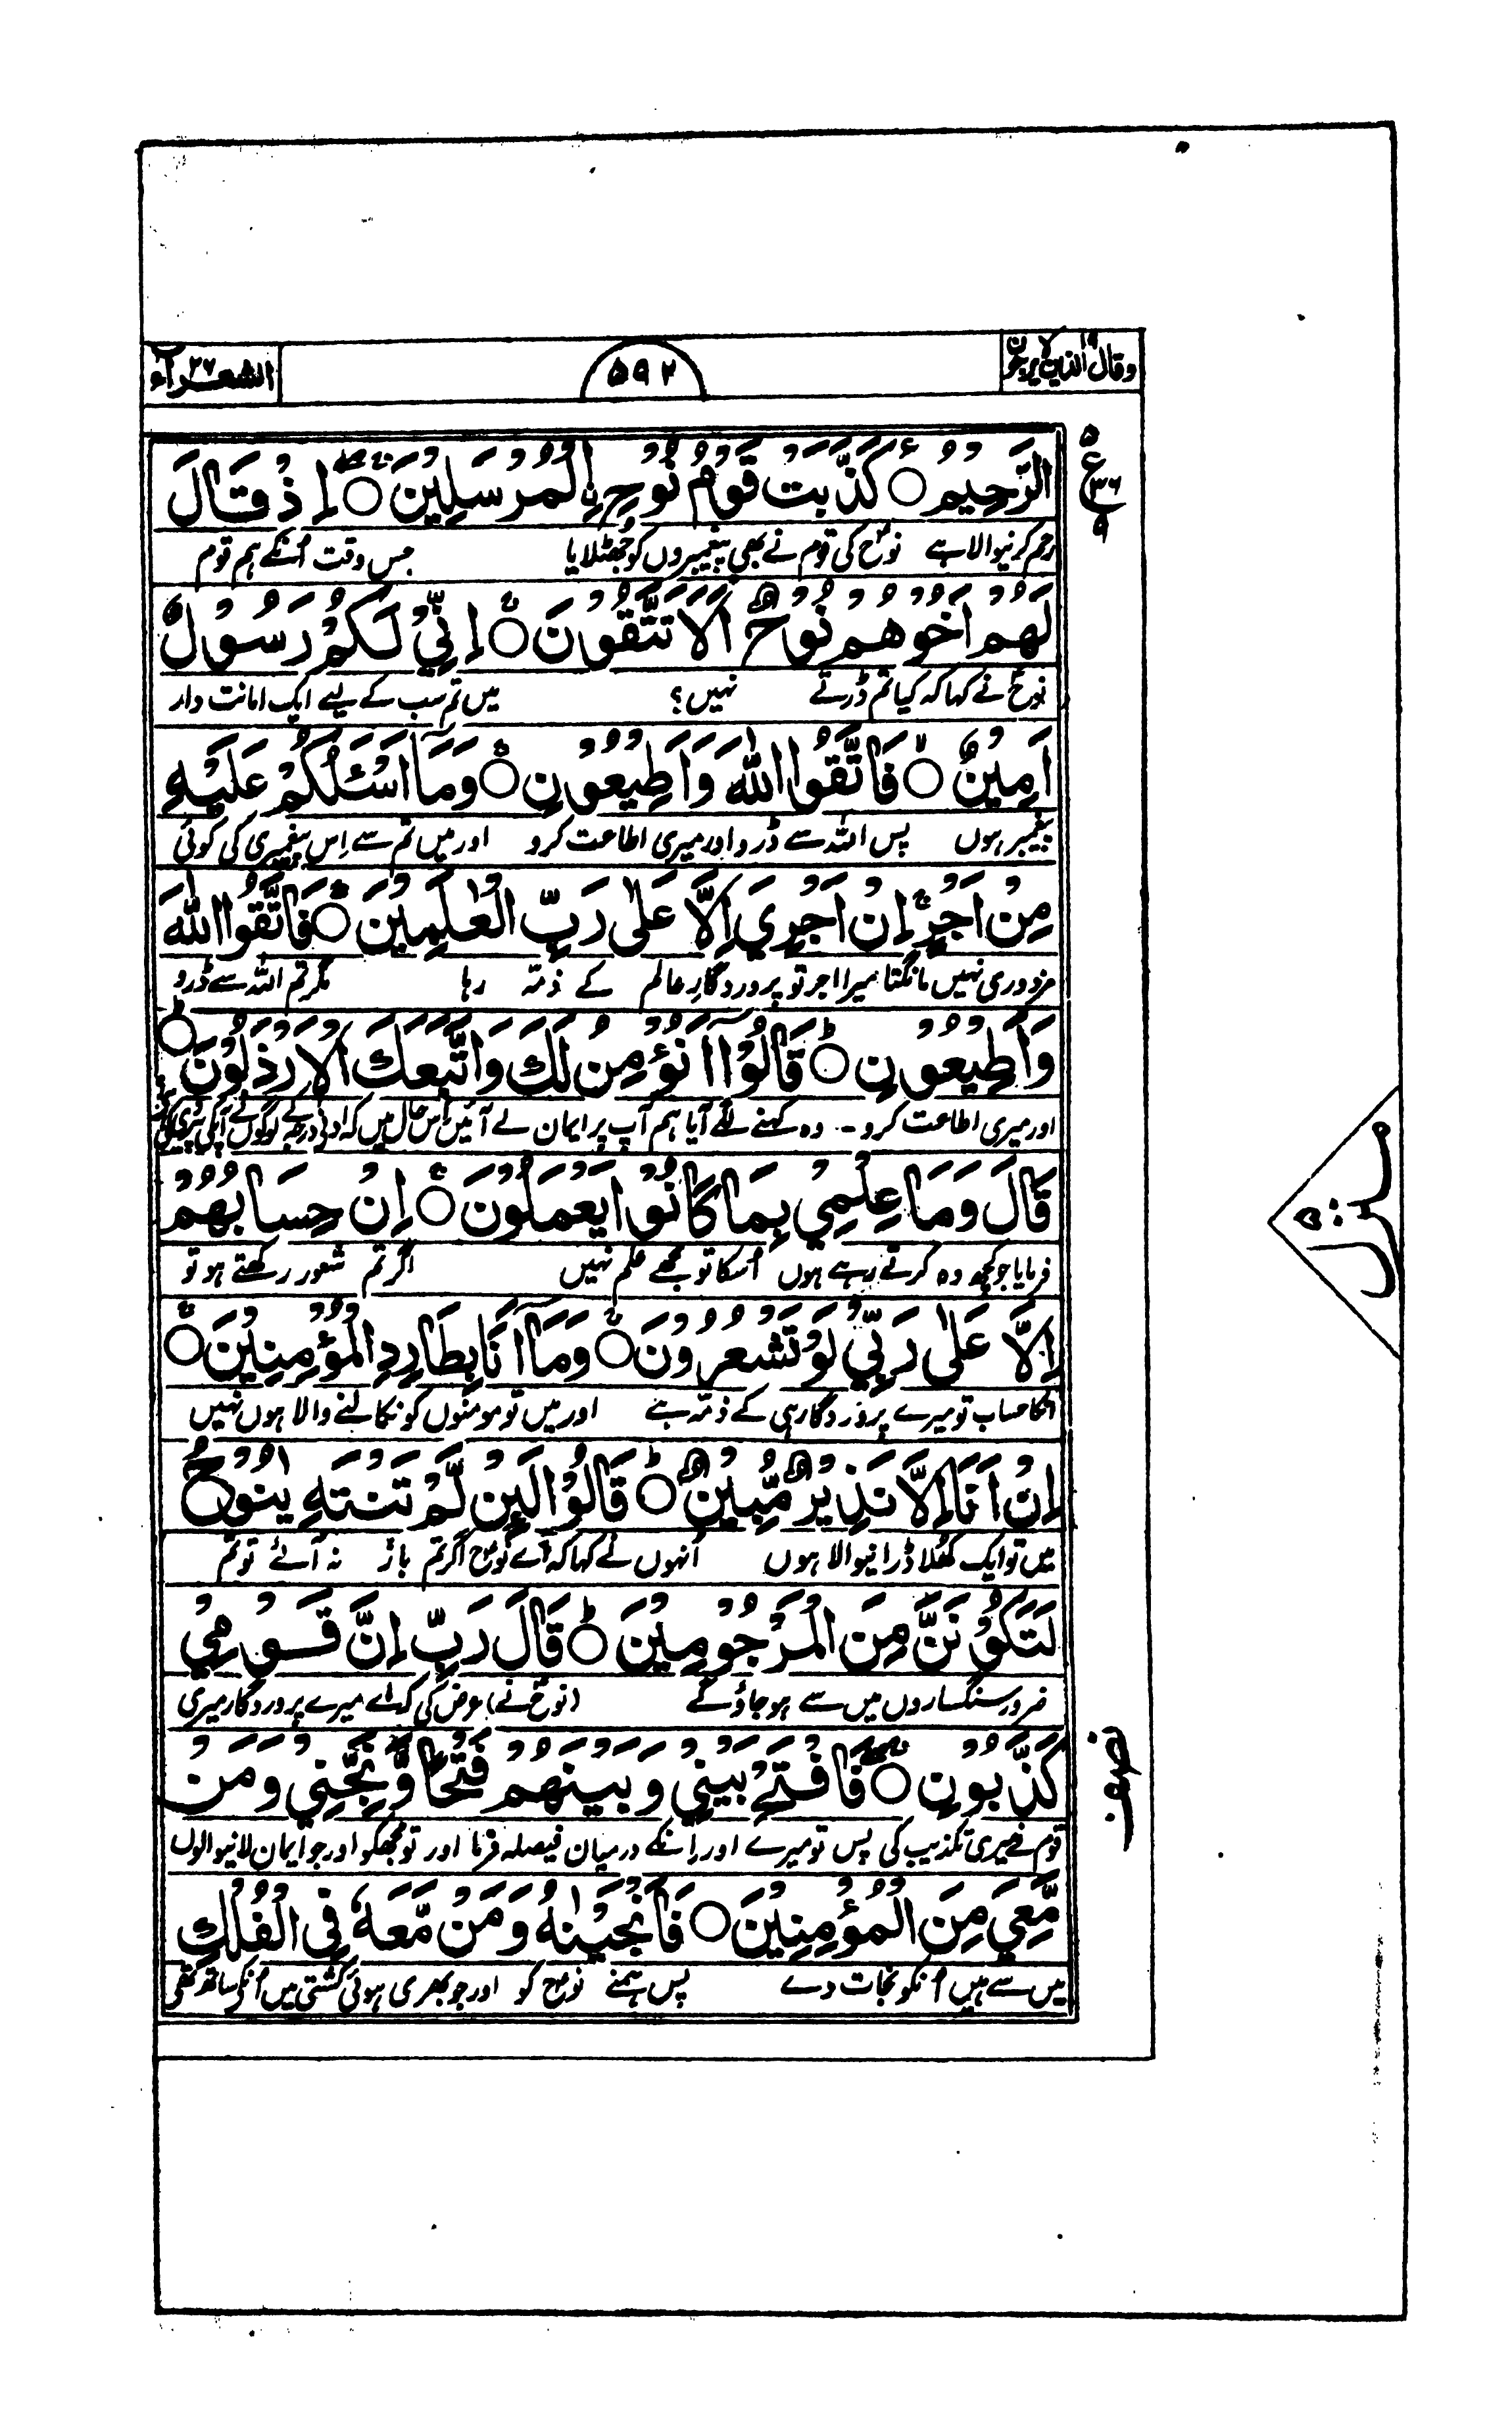 وقال الذین ۱۹ لا یرجون
۵۹۲
الشعراء ۲۶
الرَّحِيْمُ ۝ كَذَّبَتْ قَوْمُ نُوْحِ ِۨالْمُرْسَلِيْنَ ۝ اِذْ قَالَ
رحم کرنیوالا ہے نوحؑ کی قوم نے بھی پیغمبروں کو جھٹلایا جس وقت اُنکے ہم قوم
لَهُمْ اَخُوْهُمْ نُوْحٌ اَلَا تَتَّقُوْنَ ۝ اِنِّيْ لَكُمْ رَسُوْلٌ
نوحؑ نے کہا کہ کیا تم ڈرتے نہیں؟ میں تم سب کے لیے ایک امانت دار
اَمِيْنٌ ۝ فَاتَّقُوا اللّٰهَ وَاَطِيْعُوْنِ ۝ وَمَا اَسْـَٔلُكُمْ عَلَيْهِ
پیغمبر ہوں پس اللہ سے ڈرو اور میری اطاعت کرو اور میں تم سے اِس پیغمبری کی کوئی
مِنْ اَجْرٍ اِنْ اَجْرِيَ اِلَّا عَلٰى رَبِّ الْعٰلَمِيْنَ ۝ فَاتَّقُوا اللّٰهَ
مزدوری نہیں مانگتا میرا اجر تو پروردگارِ عالم کے ذمّہ رہا مگر تم اللہ سے ڈرو
وَاَطِيْعُوْنِ ۝ قَالُوْٓا اَنُؤْمِنُ لَكَ وَاتَّبَعَكَ الْاَرْذَلُوْنَ ۝
اور میری اطاعت کرو۔ وہ کہنے لگے آیا ہم آپ پر ایمان لے آئیں اُس حال میں کہ ادنیٰ درجہ کے لوگوں نے آپکی پیروی کی ہے
قَالَ وَمَا عِلْمِيْ بِمَا كَانُوْا يَعْمَلُوْنَ ۝ اِنْ حِسَابُهُمْ
فرمایا جو کچھ وہ کرتے رہے ہوں اُسکا تو مجھے علم نہیں اگر تم شعور رکھتے ہو تو
اِلَّا عَلٰى رَبِّيْ لَوْ تَشْعُرُوْنَ ۝ وَمَآ اَنَا بِطَارِدِ الْمُؤْمِنِيْنَ ۝
انکا حساب تو میرے پروردگار ہی کے ذمّہ ہے اور میں تو مومنوں کو نکالنے والا ہوں نہیں
اِنْ اَنَا اِلَّا نَذِيْرٌ مُّبِيْنٌ ۝ قَالُوْا لَئِنْ لَّمْ تَنْتَهِ يٰنُوْحُ
میں تو ایک کھلا ڈرانیوالا ہوں اُنہوں نے کہا کہ اے نوحؑ اگر تم باز نہ آئے تو تم
لَتَكُوْنَنَّ مِنَ الْمَرْجُوْمِيْنَ ۝ قَالَ رَبِّ اِنَّ قَوْمِيْ
ضرور سنگساروں میں سے ہو جاؤ گے (نوحؑ نے) عرض کی کہ اے میرے پروردگار میری
كَذَّبُوْنِ ۝ فَافْتَحْ بَيْنِيْ وَبَيْنَهُمْ فَتْحًا وَّنَجِّنِيْ وَمَنْ
قوم نے میری تکذیب کی پس تو میرے اور اِنکے درمیان فیصلہ فرما اور تو مجھکو اور جو ایمان لانیوالوں
مَّعِيَ مِنَ الْمُؤْمِنِيْنَ ۝ فَاَنْجَيْنٰهُ وَمَنْ مَّعَهٗ فِي الْفُلْكِ
میں سے ہیں اُنکو نجات دے پس ہمنے نوحؑ کو اور جو بھری ہوئی کشتی میں اُنکے ساتھ تھے
۵
ع
۳۶
۹
منزل ۵